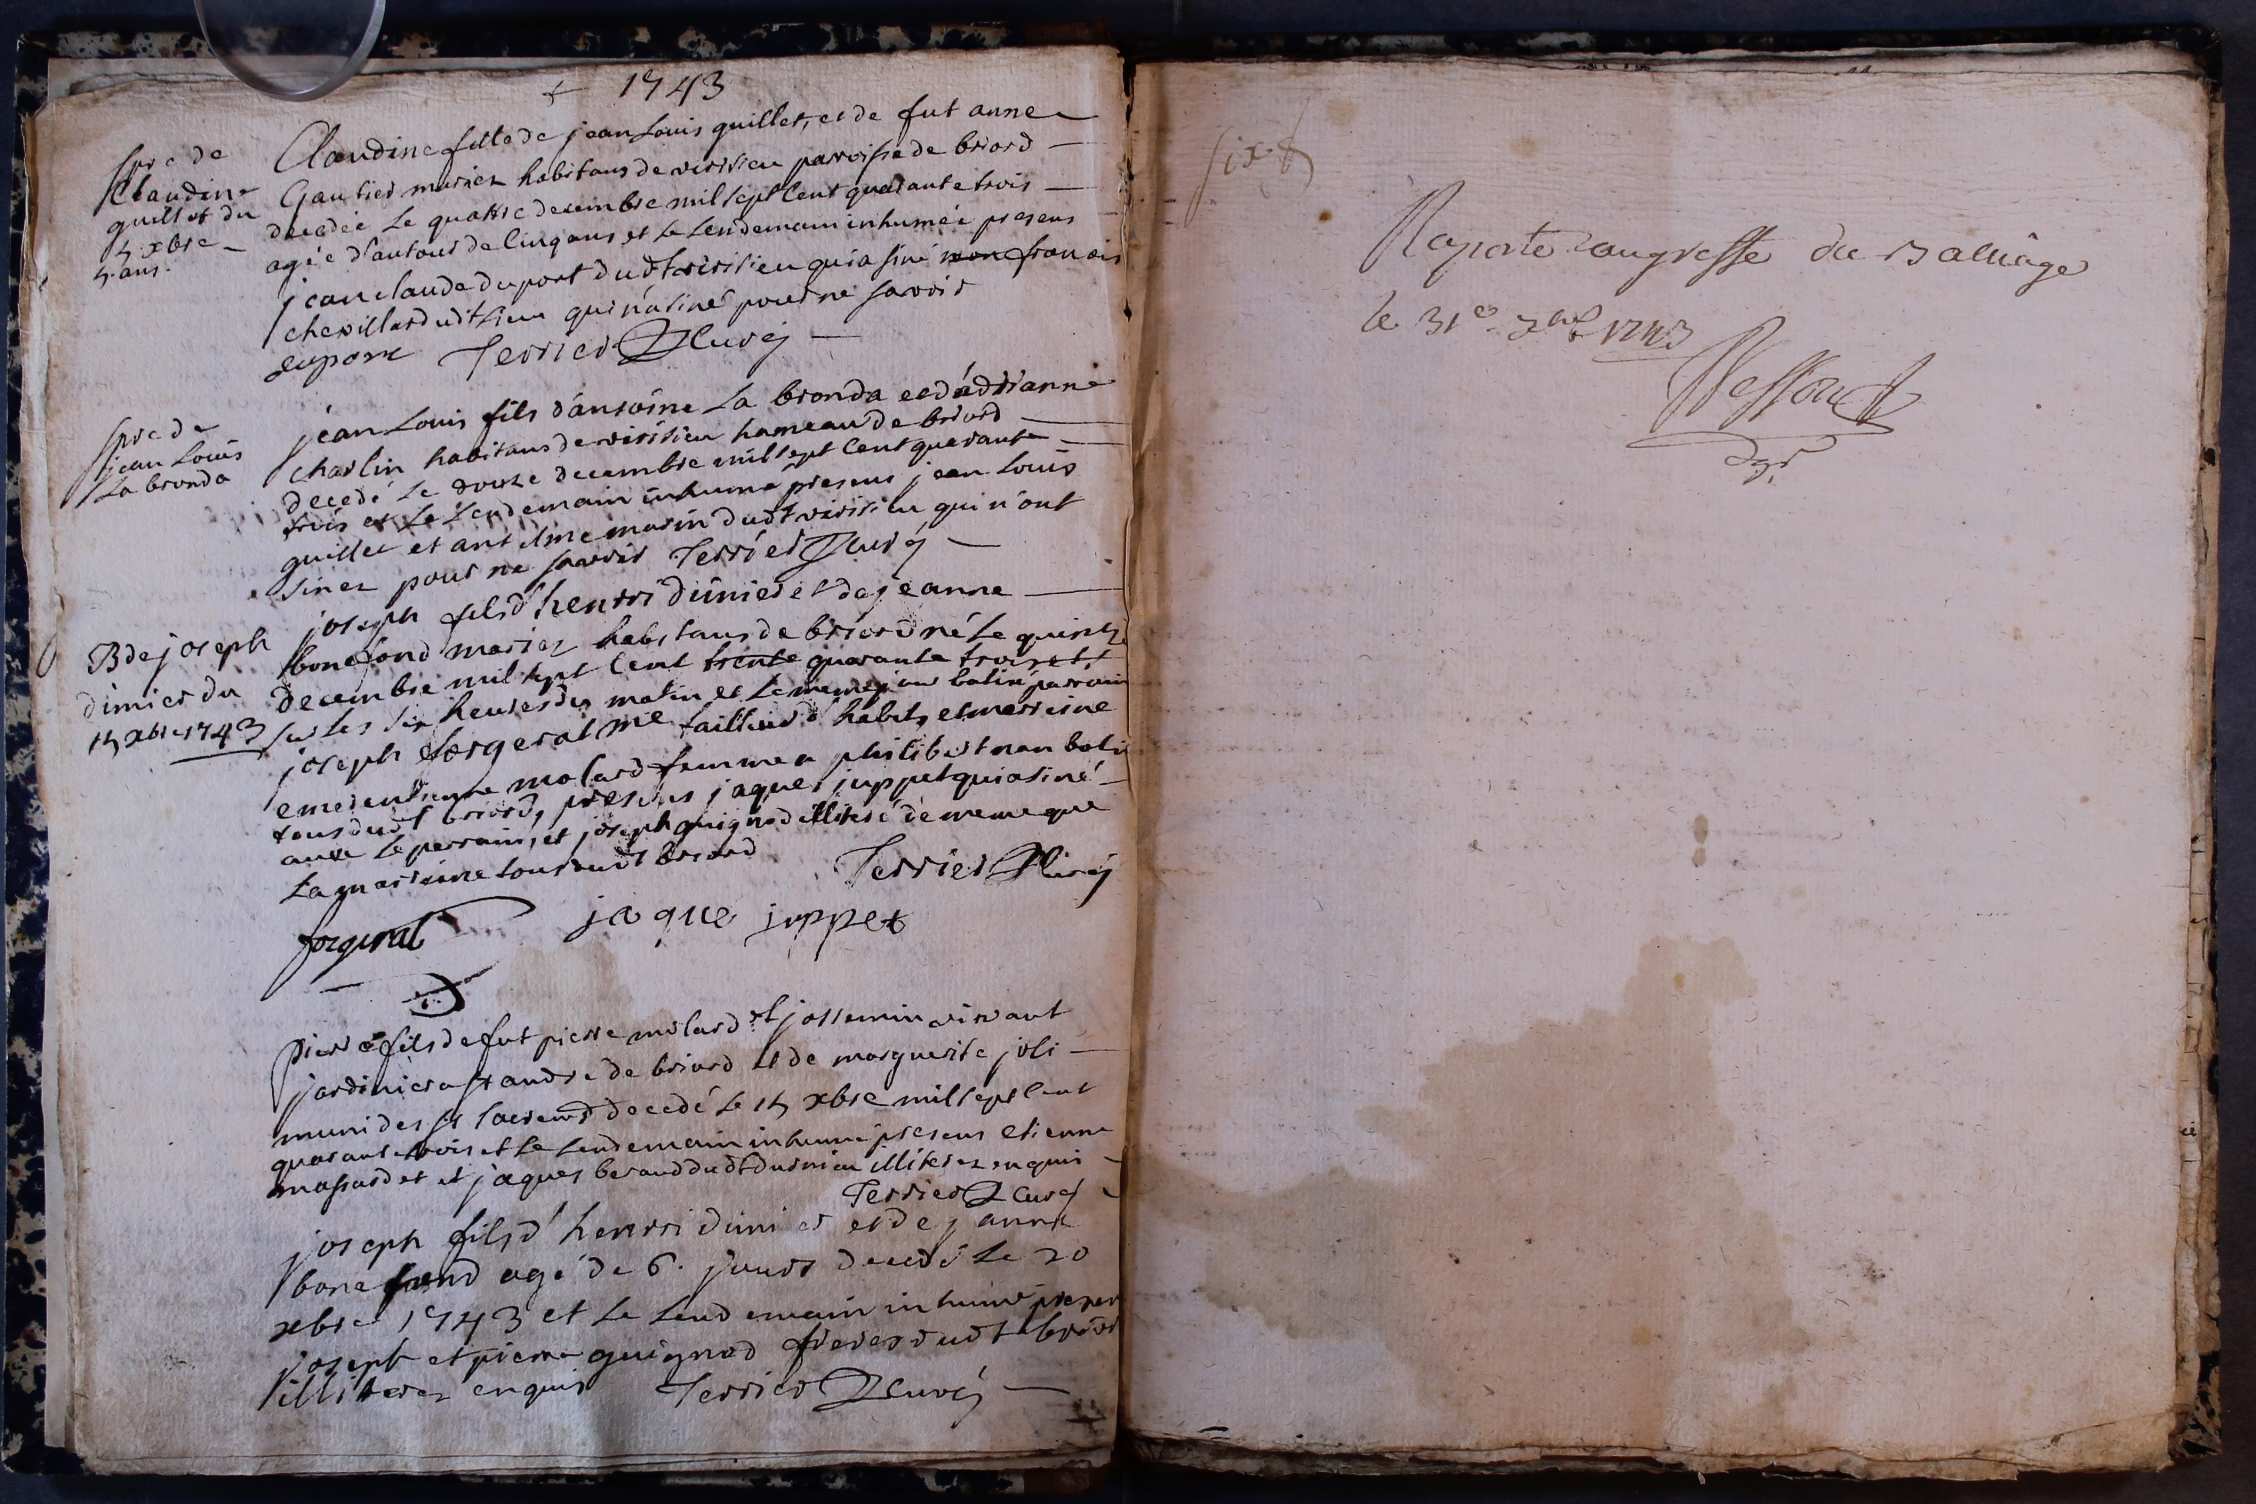 + 1743
Spre de
Claudine
guillet du
4 xbre
5 ans.
Claudine fille de jean Louis guillet, et de fut anne
Gautier mariez habitans de virisieu paroisse de briord
decedée Le quattre decembre mil sept Cent quarante trois
agée d'autour de Cinq ans et Le Lendemain inhumée presens
jean claude duport dudt virisieu qui a siné non francois
chevillard udt Lieu qui n'a siné pour ne savoir
duport Terrier Curé
Spre de
jean Louis
La bronda
jean Louis fils d'antoine La bronda et d'adrianne
charlin habitans de virisieu hameau de briord
decedé Le douze decembre mil sept Cent quarante
trois et Le Lendemain inhumé presens jean Louis
guillet et antelme marin dudt virisieu qui n'ont
sinez pour ne savoir Terrier Curé
B de joseph
dimier du
15 xbre 1743
joseph fils d'henri dimier et de jeanne
bonefond mariez habitans de briord né Le quinze
decembre mil sept Cent trente quarante trois et
sur Les six heures du matin et Le meme jour batisé parrain
joseph forgeral me tailleur d'habits, et marreine
emerentienne molard femme a philibert nan
tous dudt briord, presens jaques juppet qui a siné
avec Le parrain, et joseph guignod illiteré de meme que
La marreine tous dudt briord Terrier Curé
forgeral jaque juppet
Pierre fils de fut pierre molard et jossemin vivant
jardinier a st andre de briord et de marguerite joli
muni des sts sacremts decedé Le 15 xbre mil sept Cent
quarante trois et Le Lendemain inhumé presens etienne
massard et et jaques beraud dudt illiterez enquis
Terrier Curé
joseph fils d'henri dimier et de janne
bonefond agé de 6. jours decedé Le 20
xbre 1743 et Le Lendemain inhumé presen
joseph et pierre guignod freres dudt briord
illiterez enquis Terrier Curé
six
Raporté au greffe du Balliage
le 31e xbre 1743